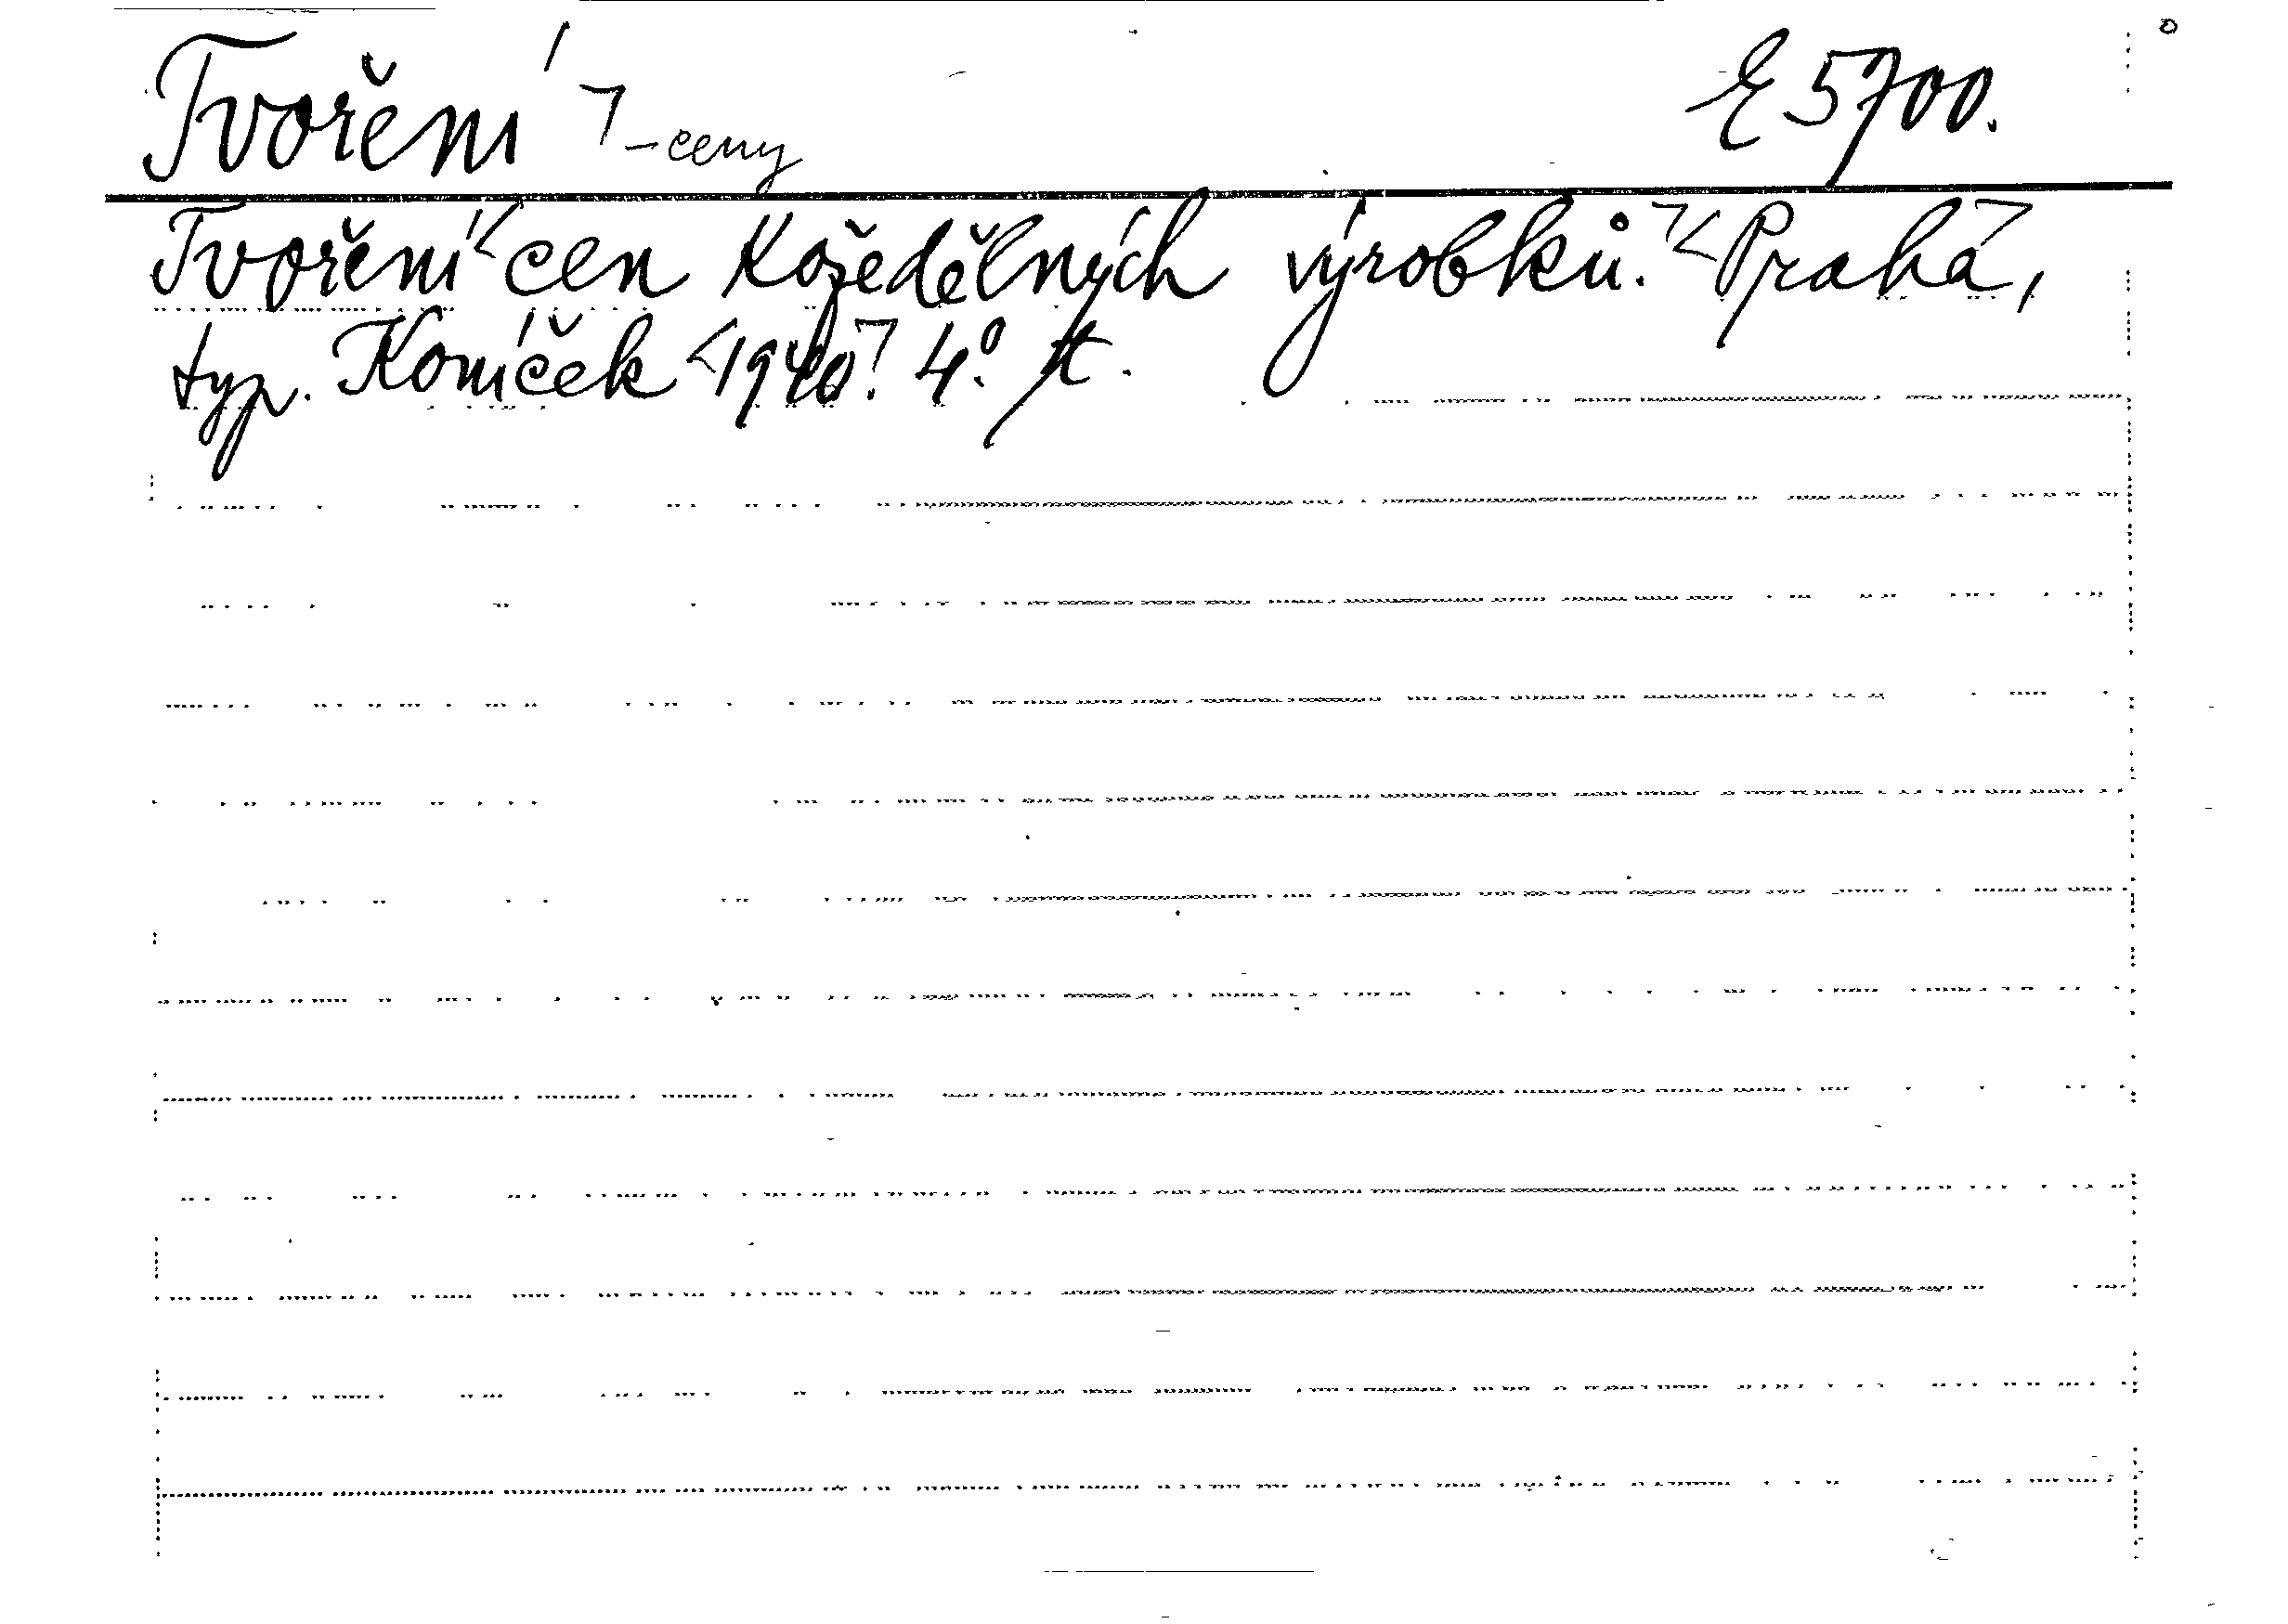 Tvoření ⌝ -ceny E 5700.
Tvoření < cen kožedělných výrobků. ⌝ < Praha ⌝,
typ. Koníček < 1940 ⌝. 4°. st.